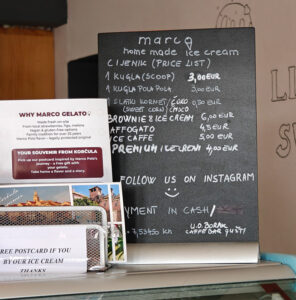 marco
home made ice cream
CIJENIK (PRICE LIST)
1 KUGLA (SCOOP) 3,00EUR
1 KUGLA POLA POLA 3,00 EUR
SLATKI KORNET/ČOKO 0,30 EUR
(SWEET CORN) (CHOCO)
BROWNIE & ICE CREAM 6,00 EUR
AFFOGATO 4,5 EUR
ICE CAFFE 5,00 EUR
PREMIUM ICE CREAM 4,00 EUR
FOLLOW US ON INSTAGRAM
YMENT IN CASH/
7,53450 Kn
U.O. BORAK
CAFFE BAR
WHY MARCO GELATO?
Made fresh on site
From local strawberries, figs, melons
Vegan & gluten-free options
Family tradition for over 25 years
Marco Polo flavor – legally protected original
YOUR SOUVENIR FROM KORČULA
Pick up our postcard inspired by Marco Polo's
journey – a free gift with
your gelato.
Take home a flavor and a story.
FREE POSTCARD IF YOU
BY OUR ICE CREAM
THANKS